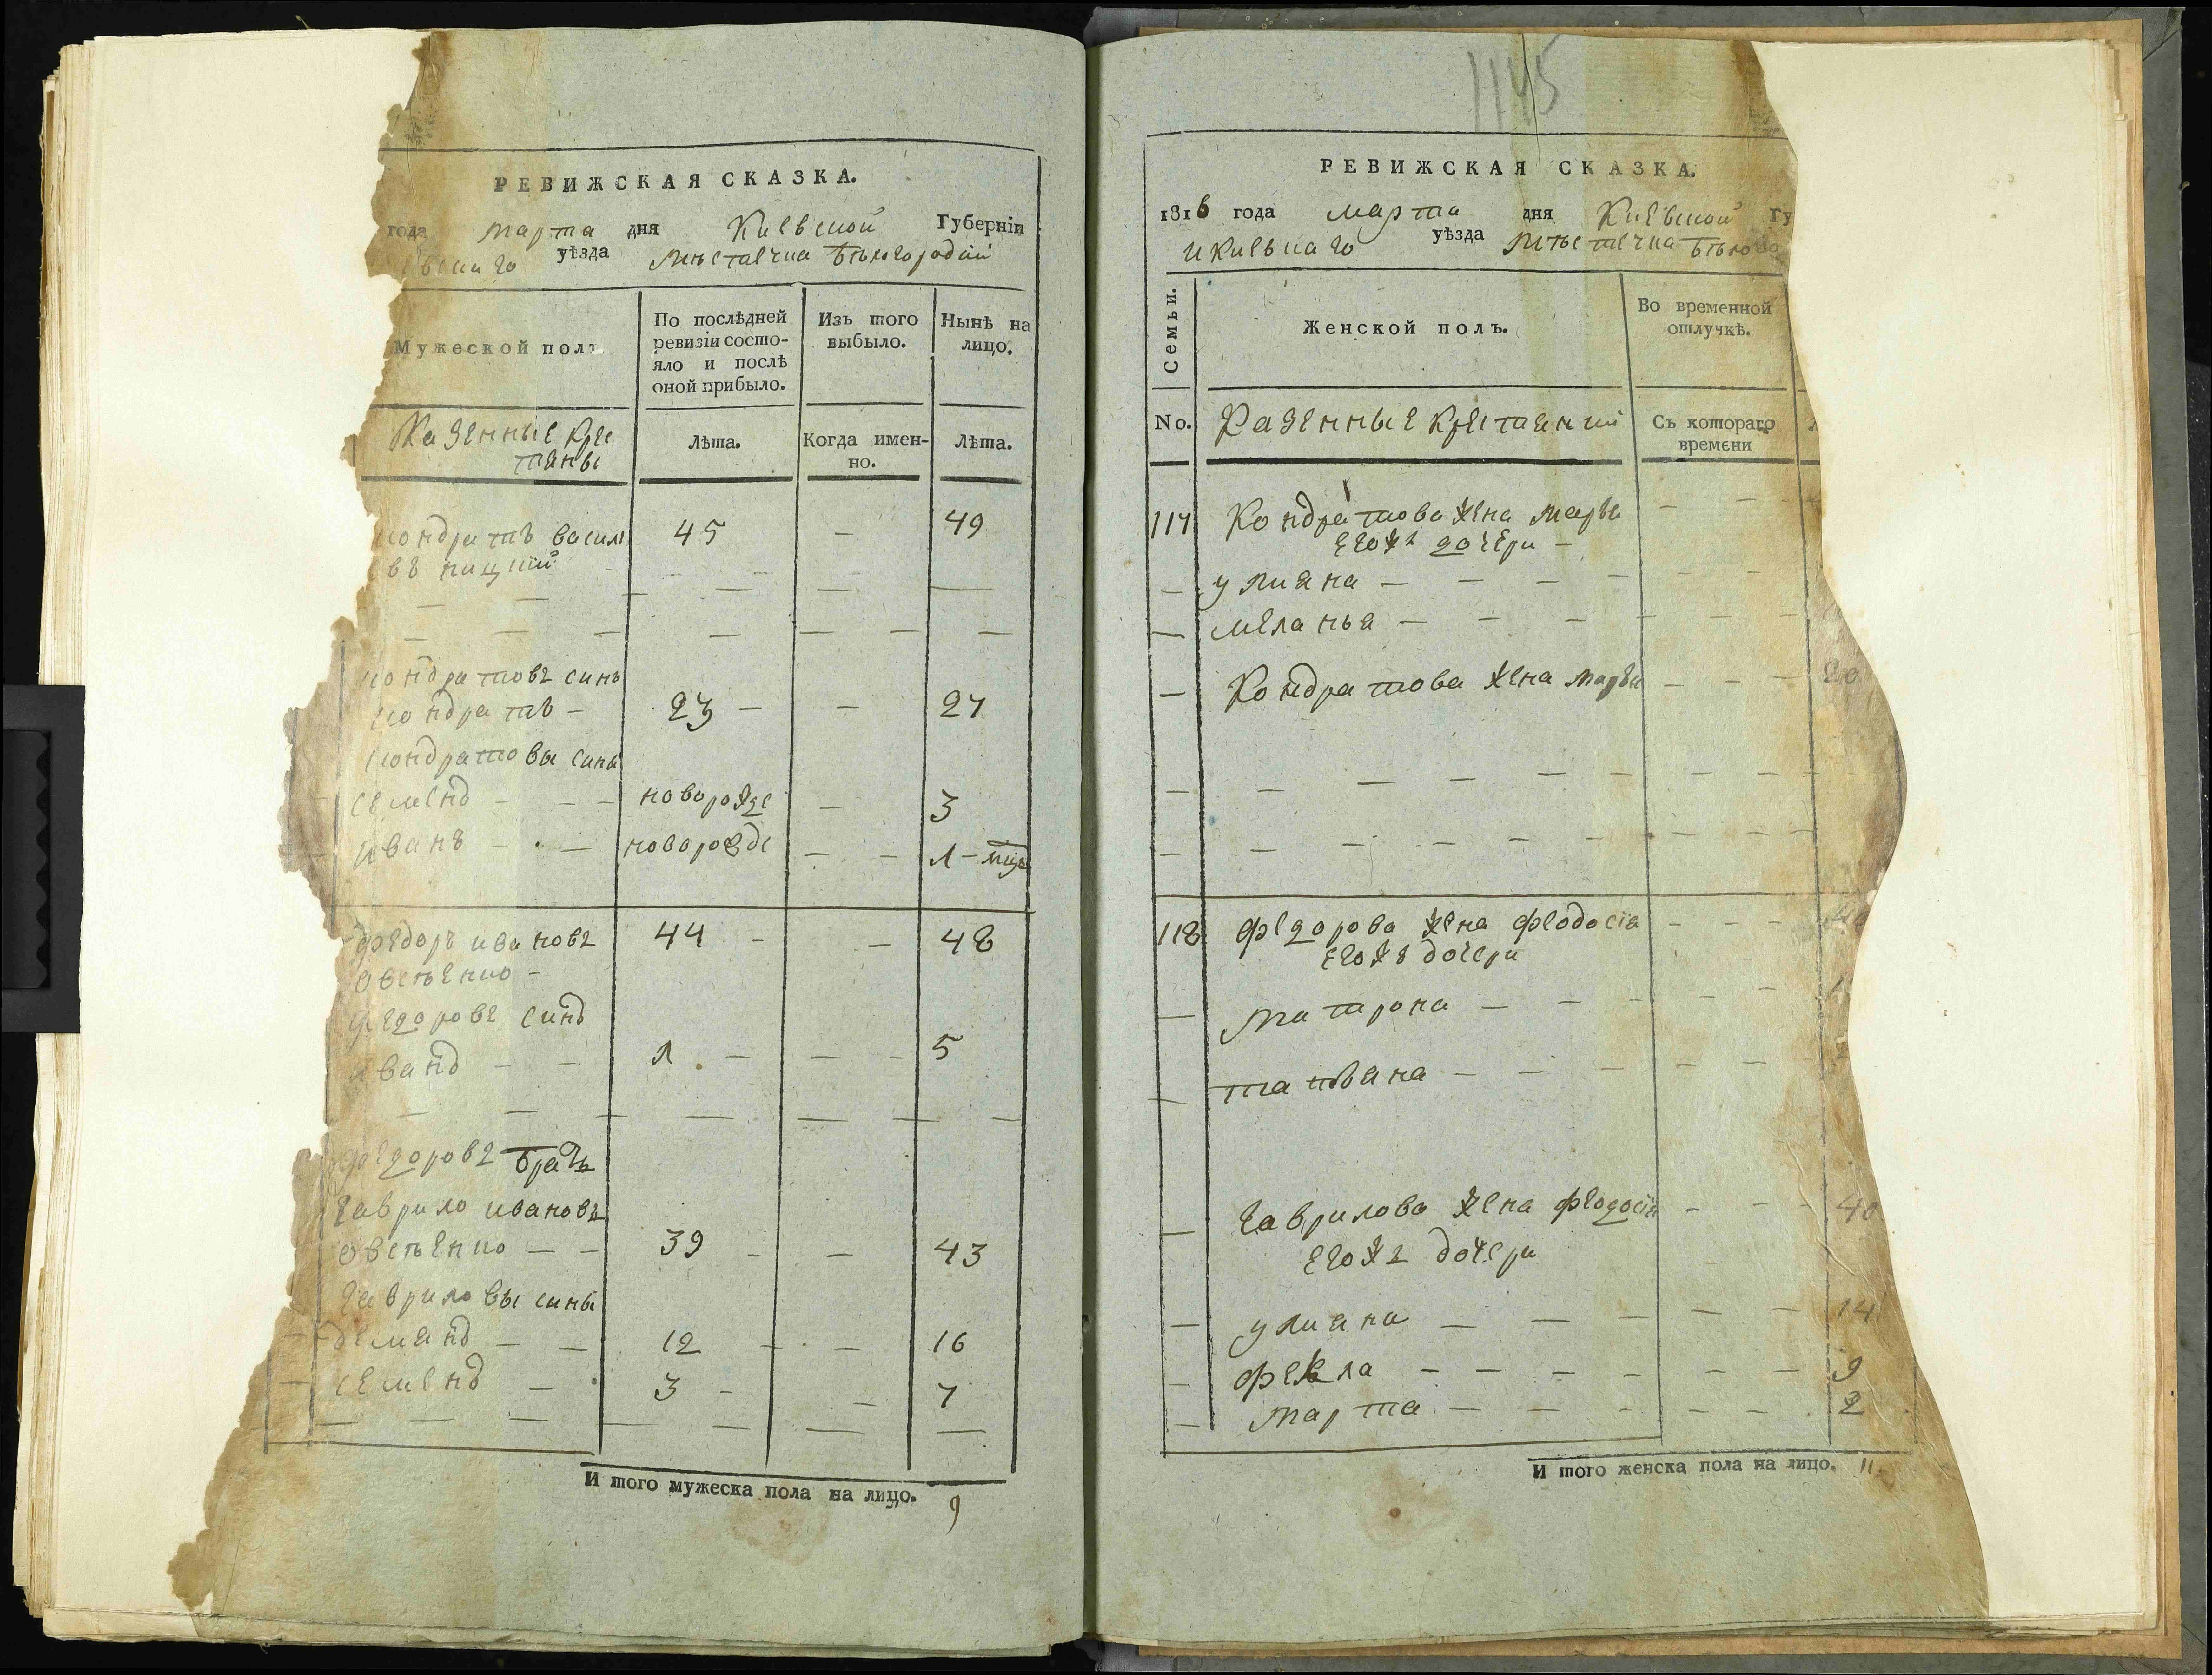 РЕВИЖСКАЯ СКАЗКА.
года марта дня Киевской Губерніи
уѣзда мѣстечка Бѣлогородки
Мужеской полъ
По послѣдней ревизіи состояло и послѣ оной прибыло.
Изъ того выбыло.
Нынѣ на лицо.
Казенные кре
стяне
Лѣта.
Когда именно.
Лѣта.
кондратъ васил
въ ницкій
45 — 49
кондратовъ синъ
кондратъ — 23 — — 27
кондратовы сины
семенъ — — новорожде — 3
иванъ — — новорожде — — 1 — мца
федоръ ивановъ 44 — — 48
овсѣенко —
федоровъ синъ
иванъ — — 1 — — — 5
федоровъ братъ
гаврило ивановъ
овсѣенко — — 39 — — 43
гавриловы сины
демянъ — — 12 — — 16
семенъ — 3 — — 7
И того мужеска пола на лицо. 9
1145
РЕВИЖСКАЯ СКАЗКА.
1816 года марта дня Киевской Гу
и Киевскаго уѣзда мѣстечка Бѣлого
Семьи.
Женской полъ.
Во временной отлучкѣ.
No.
Казенные крестянки
Съ котораго времени
117 Кондратова жена марья — —
егожъ дочери —
— улияна — — — —
— меланья — — — —
— Кондратова жена марья — — — 20
118 федорова жена феодосія — — —
егожъ дочери
— матрона — — —
— татияна — — —
— гаврилова жена феодосія — — — 40
егожъ дочери
— улияна — — — — — 14
— фекла — — — — — — 9
— марта — — — — — — 2
И того женска пола на лицо. 11